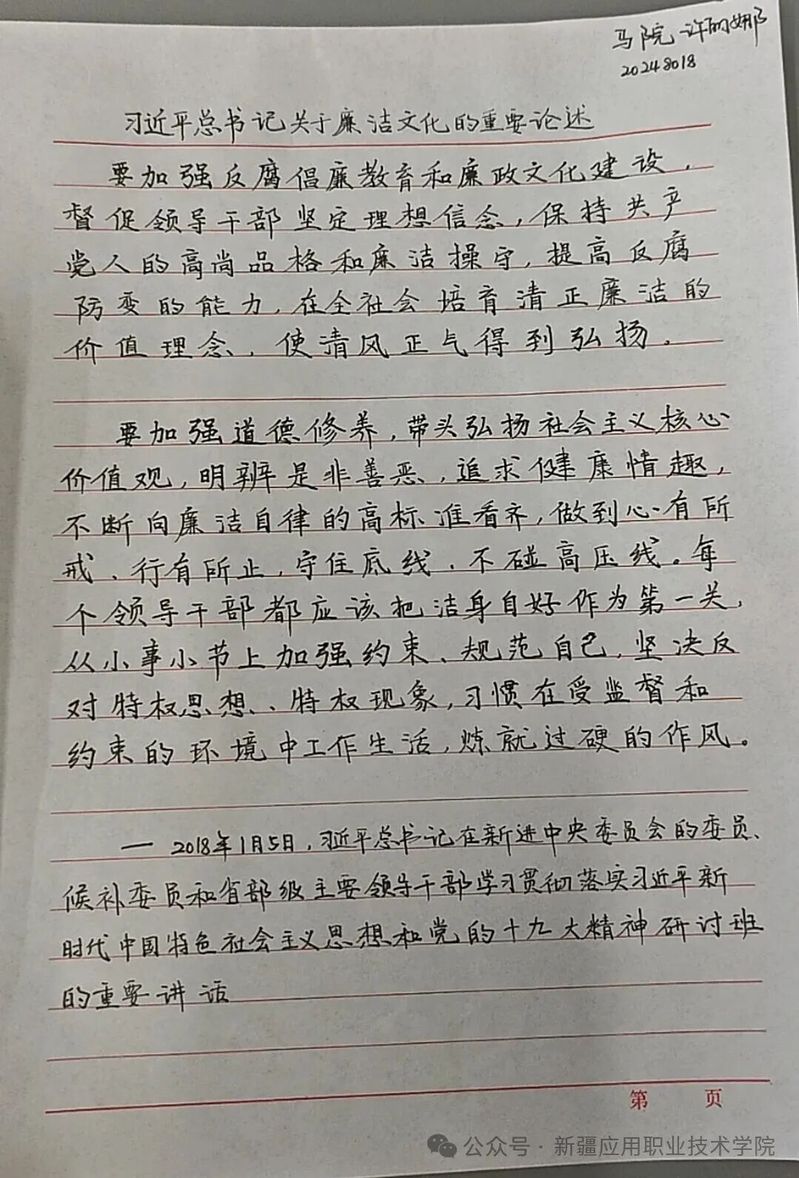 马院 许丽娜
20248018
习近平总书记关于廉洁文化的重要论述
要加强反腐倡廉教育和廉政文化建设，
督促领导干部坚定理想信念，保持共产
党人的高尚品格和廉洁操守，提高反腐
防变的能力，在全社会培育清正廉洁的
价值理念，使清风正气得到弘扬。
要加强道德修养，带头弘扬社会主义核心
价值观，明辨是非善恶，追求健康情趣，
不断向廉洁自律的高标准看齐，做到心有所
戒、行有所止，守住底线、不碰高压线。每
个领导干部都应该把洁身自好作为第一关，
从小事小节上加强约束、规范自己，坚决反
对特权思想、、特权现象，习惯在受监督和
约束的环境中工作生活，炼就过硬的作风。
— 2018年1月5日，习近平总书记在新进中央委员会的委员、
候补委员和省部级主要领导干部学习贯彻落实习近平新
时代中国特色社会主义思想和党的十九大精神研讨班
的重要讲话
第 页
公众号·新疆应用职业技术学院